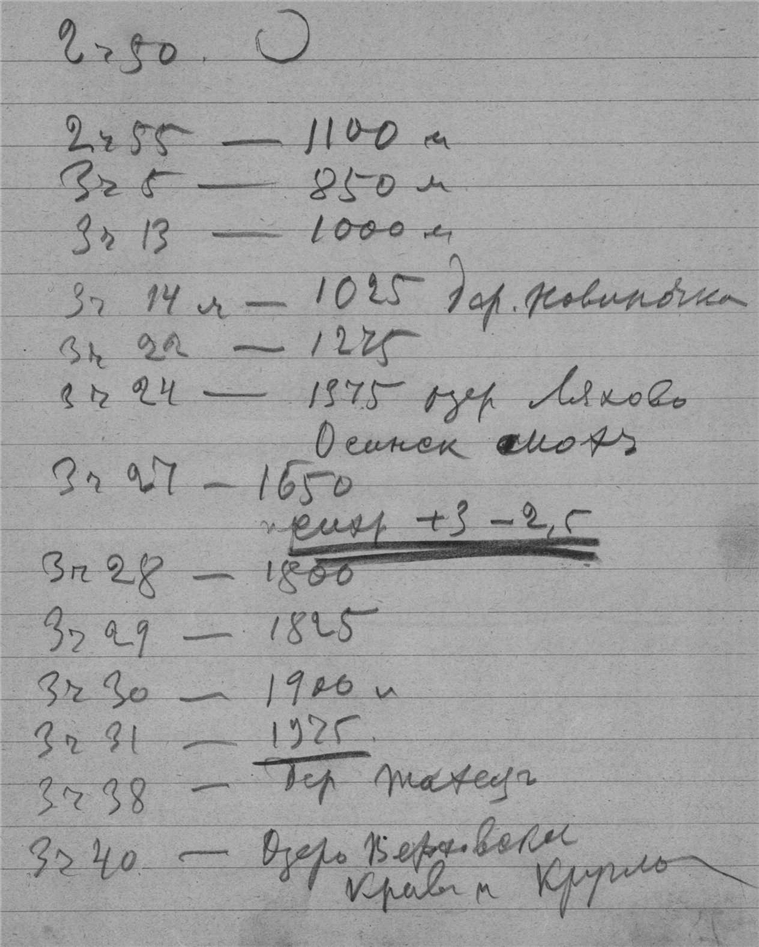 2ч50. О
2ч55 — 1100 м
3ч 5 — 850 м
3ч 13 — 1000 м
3ч 14 м — 1025 дер. Новиночка
3ч 22 — 1275
3ч 24 — 1375 озер Ляхово
Осинск мохъ
3ч 27 — 1650
+3 -2,5
3ч 28 — 1800
3ч 29 — 1825
3ч 30 — 1900 м
3ч 31 — 1975
3ч 38 — дер
3ч 40 — Озеро
Кругло